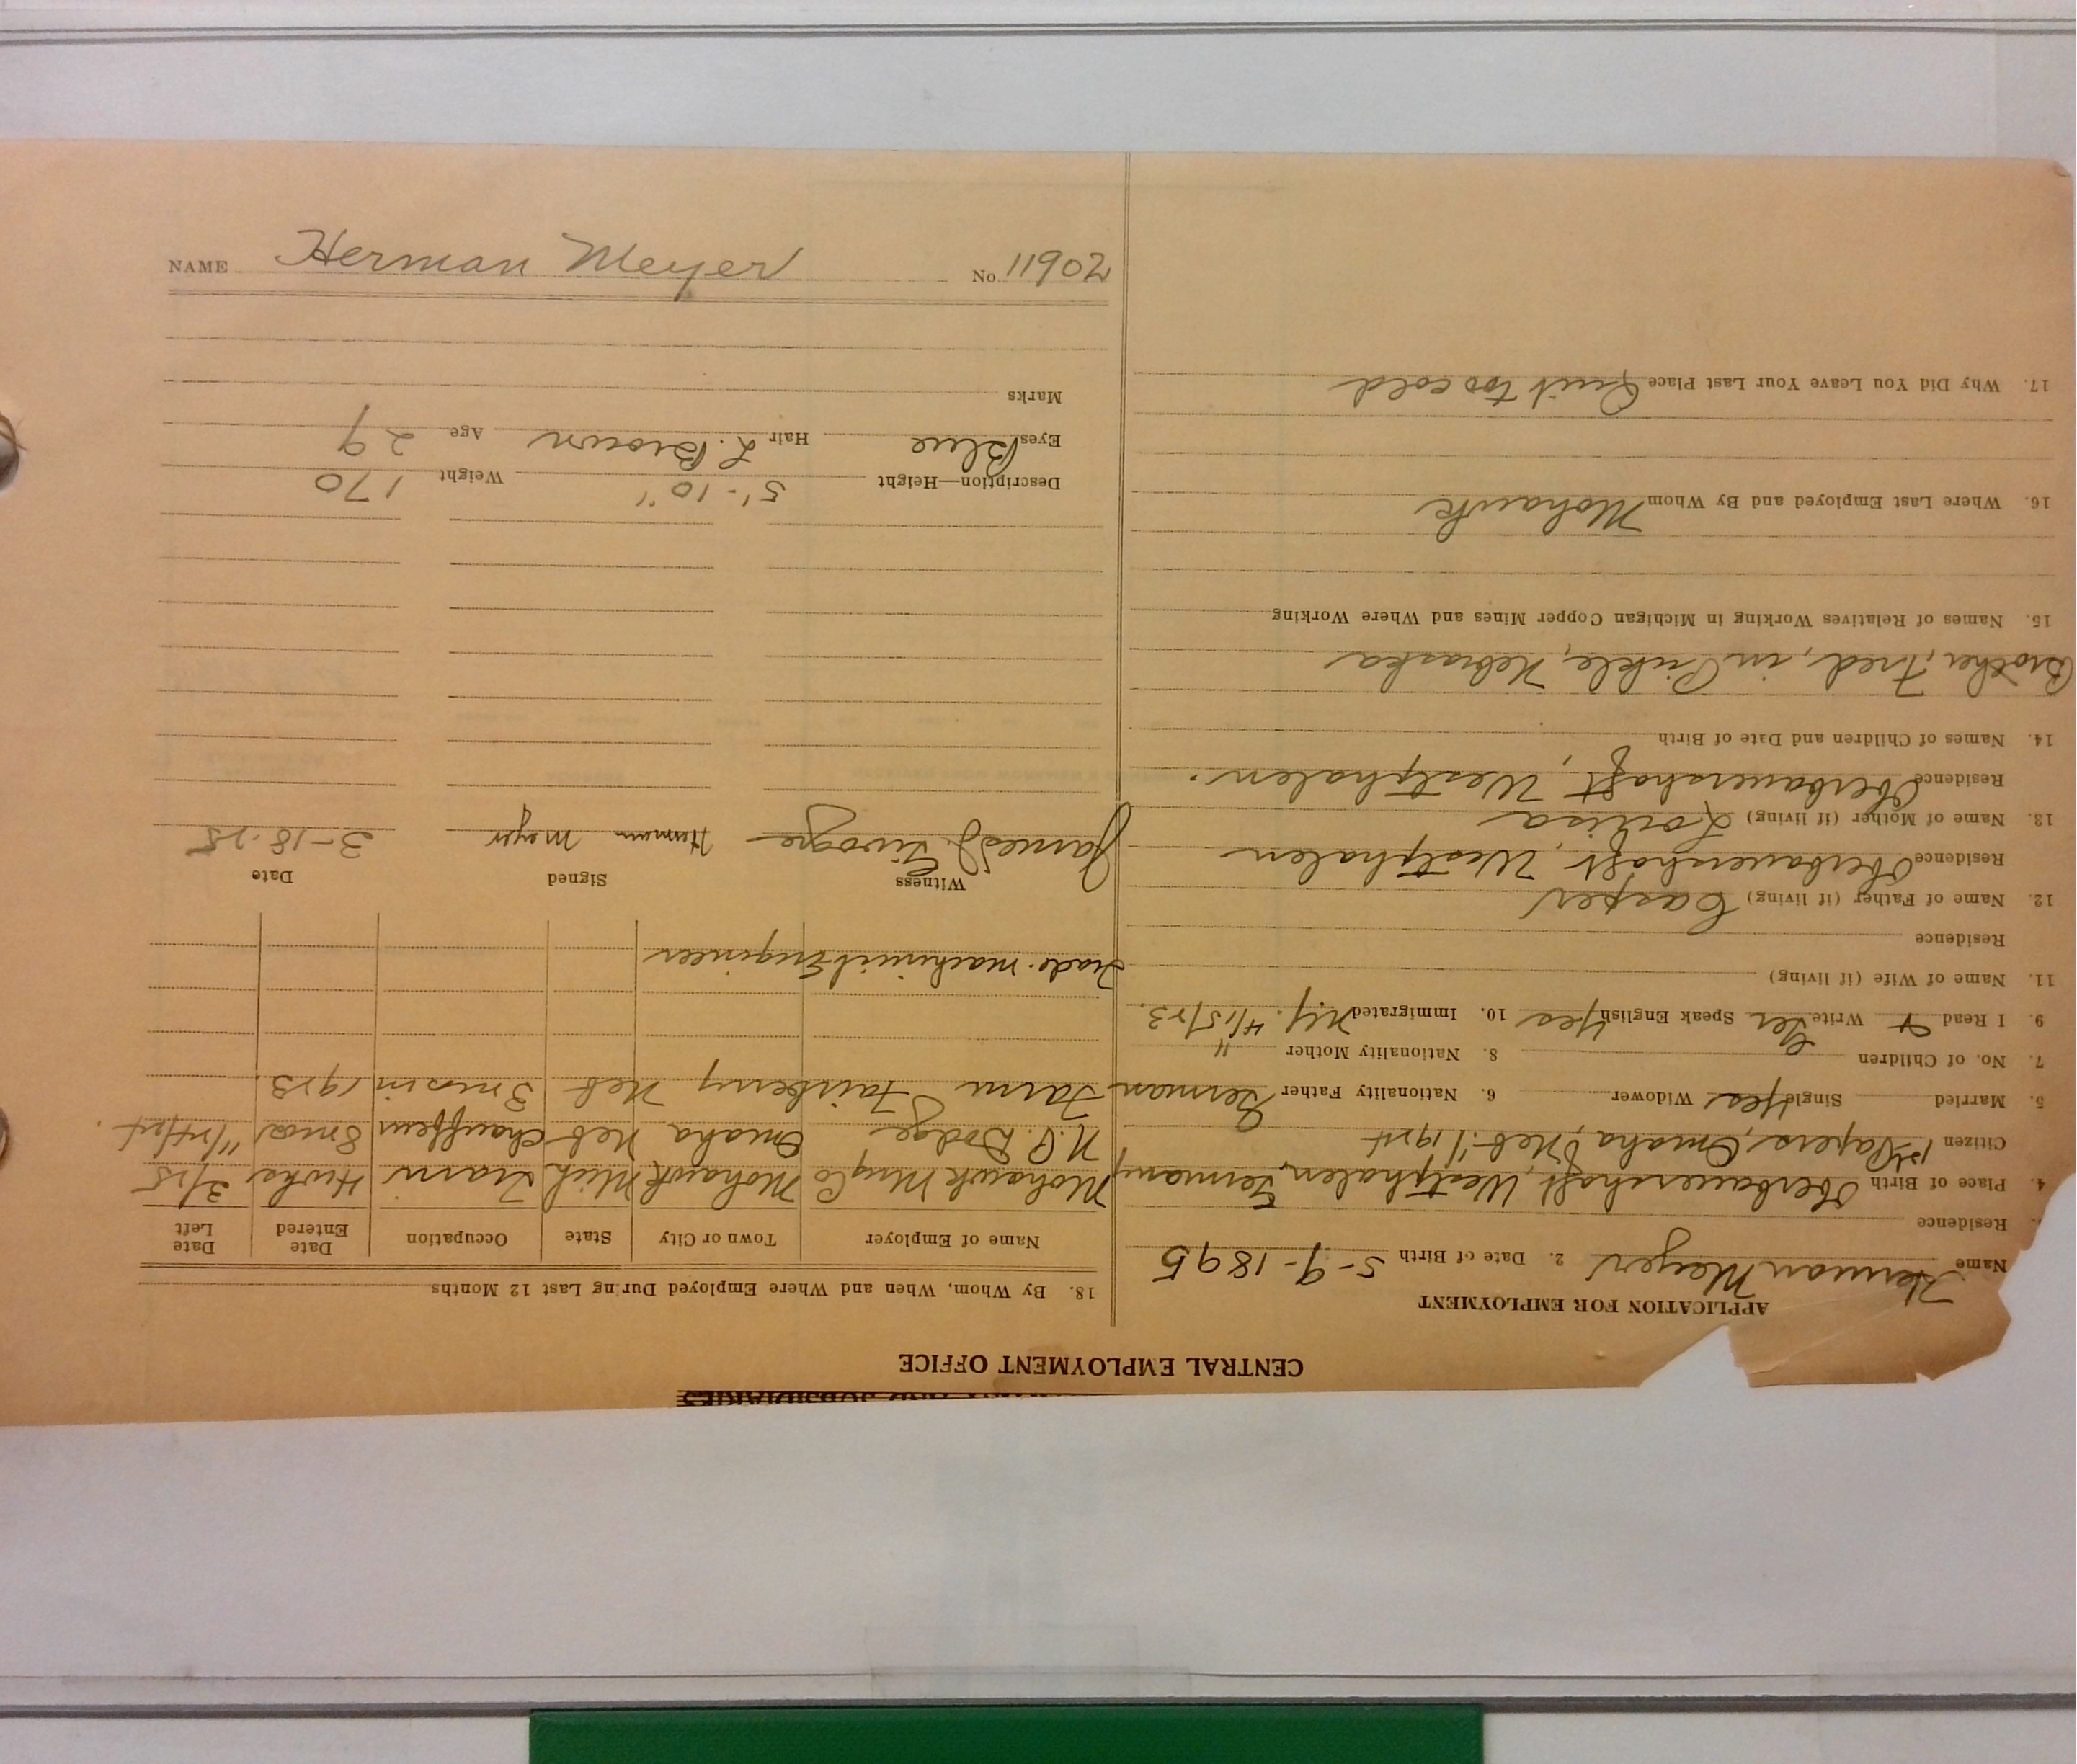 AND SUBSIDIARIES
CENTRAL EMPLOYMENT OFFICE
APPLICATION FOR EMPLOYMENT
Name Herman Meyer 2. Date of Birth 5-9-1895
Residence
4. Place of Birth Oberbauerschaft, Westphalen, Germany
Citizen 1st Papers, Omaha, Neb. 1/1924
5. Married Single Yes Widower 6. Nationality Father German
7. No. of Children 8. Nationality Mother "
9. I Read & Write Ger Speak English Yes 10. Immigrated N.Y. 4/15/23.
11. Name of Wife (if living)
Residence
12. Name of Father (if living) Casper
Residence Oberbauerschaft, Westphalen
13. Name of Mother (if living) Louisa
Residence Oberbauerschaft, Westphalen.
14. Names of Children and Date of Birth
Brother, Fred, in Nebraska
15. Names of Relatives Working in Michigan Copper Mines and Where Working
16. Where Last Employed and By Whom Mohawk
17. Why Did You Leave Your Last Place Quit too cold
18. By Whom, When and Where Employed During Last 12 Months
Name of Employer Town or City State Occupation Date Entered Date Left
Mohawk Mng Co Mohawk Mich Tram 4 wks 3/15
N.P. Dodge Omaha Neb chauffeur 8 mos 11/24/24.
Farm Fairberry Neb 3 mos in 1923.
Trade- machinist Engineer
Witness Signed Date
James J. Herman Meyer 3-18-25
Description—Height 5'-10" Weight 170
Eyes Blue Hair L. Brown Age 29
Marks
NAME Herman Meyer No. 11902